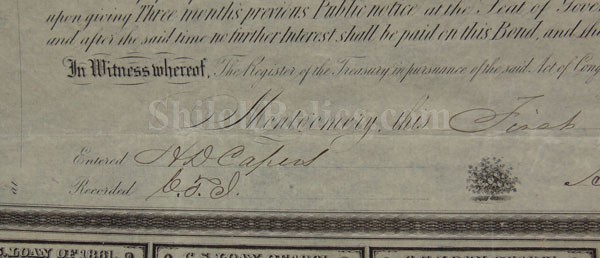 upon giving Three months previous Public notice at the Seat of Gove
and after the said time no further Interest shall be paid on this Bond, and the
In Witness whereof, The Register of the Treasury in pursuance of the said Act of Cong
ShilohRelics.com
Montgomery, this First
Entered H D Capers
Recorded C. T. J.
LOAN OF 1861.
C. S. LOAN OF 1861.